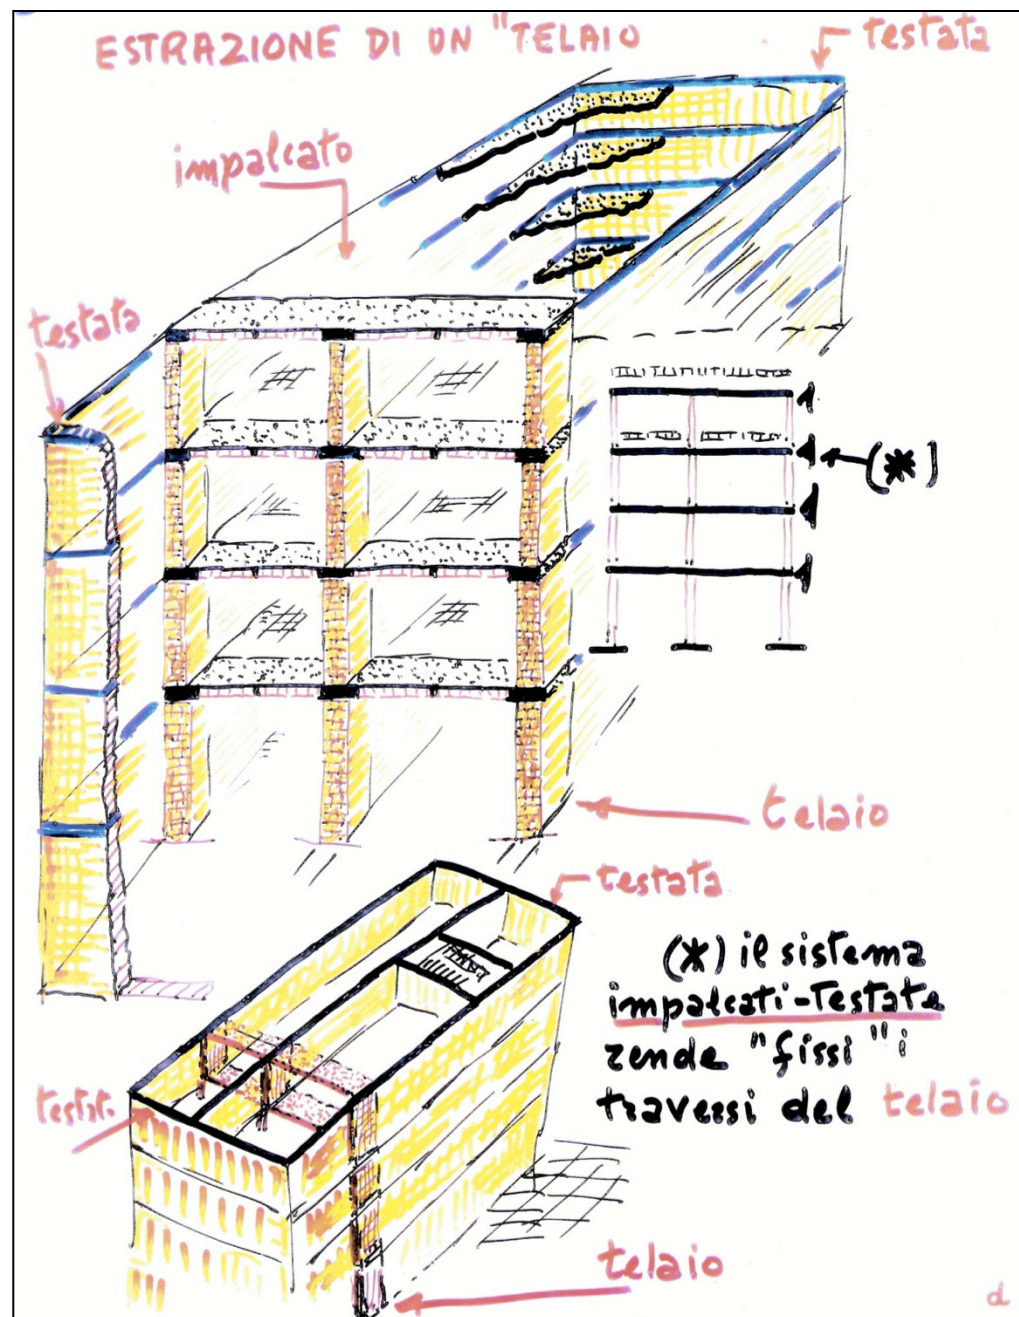 ESTRAZIONE DI UN "TELAIO
testata
impalcato
testata
(*)
telaio
testata
(*) il sistema
impalcati-testate
rende "fissi" i
traversi del telaio
telaio
d